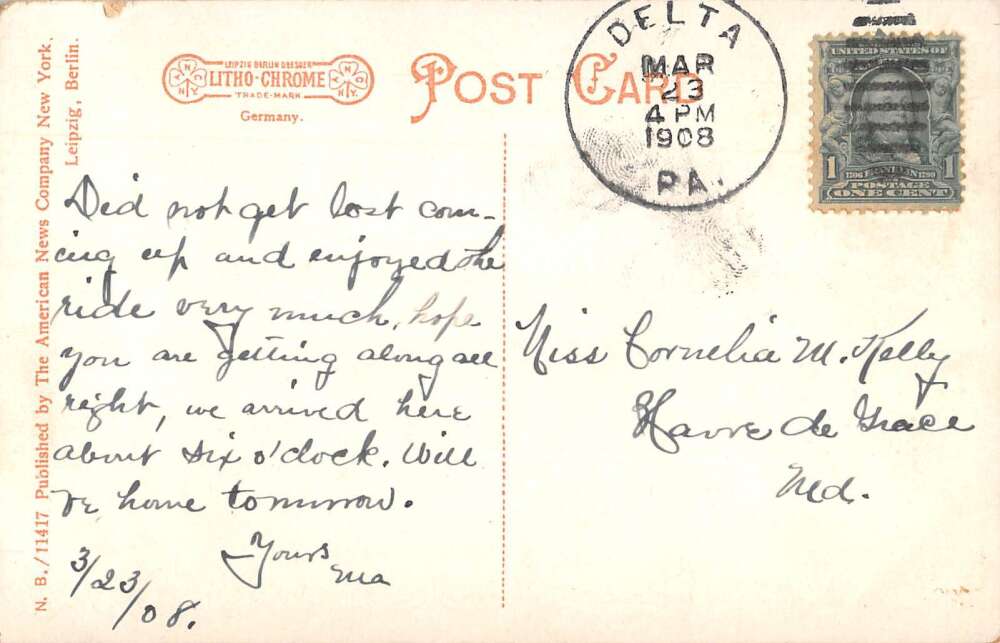 N. B./11417 Published by The American News Company New York.
Leipzig, Berlin.
LEIPZIG BERLIN DRESDEN
LITHO-CHROME
TRADE-MARK
Germany.
POST CARD
DELTA
MAR
23
4 PM
1908
PA.
UNITED STATES OF
1 1
1706 FRANKLIN 1790
POSTAGE
ONE CENT
Did not get lost com-
ing up and enjoyed the
ride very much, hope
you are getting along all
right, we arrived here
about six o'clock. Will
be home tomorrow.
Yours
Ma
3/23/08.
Miss Cornelia M. Kelly
Havre de Grace
Md.